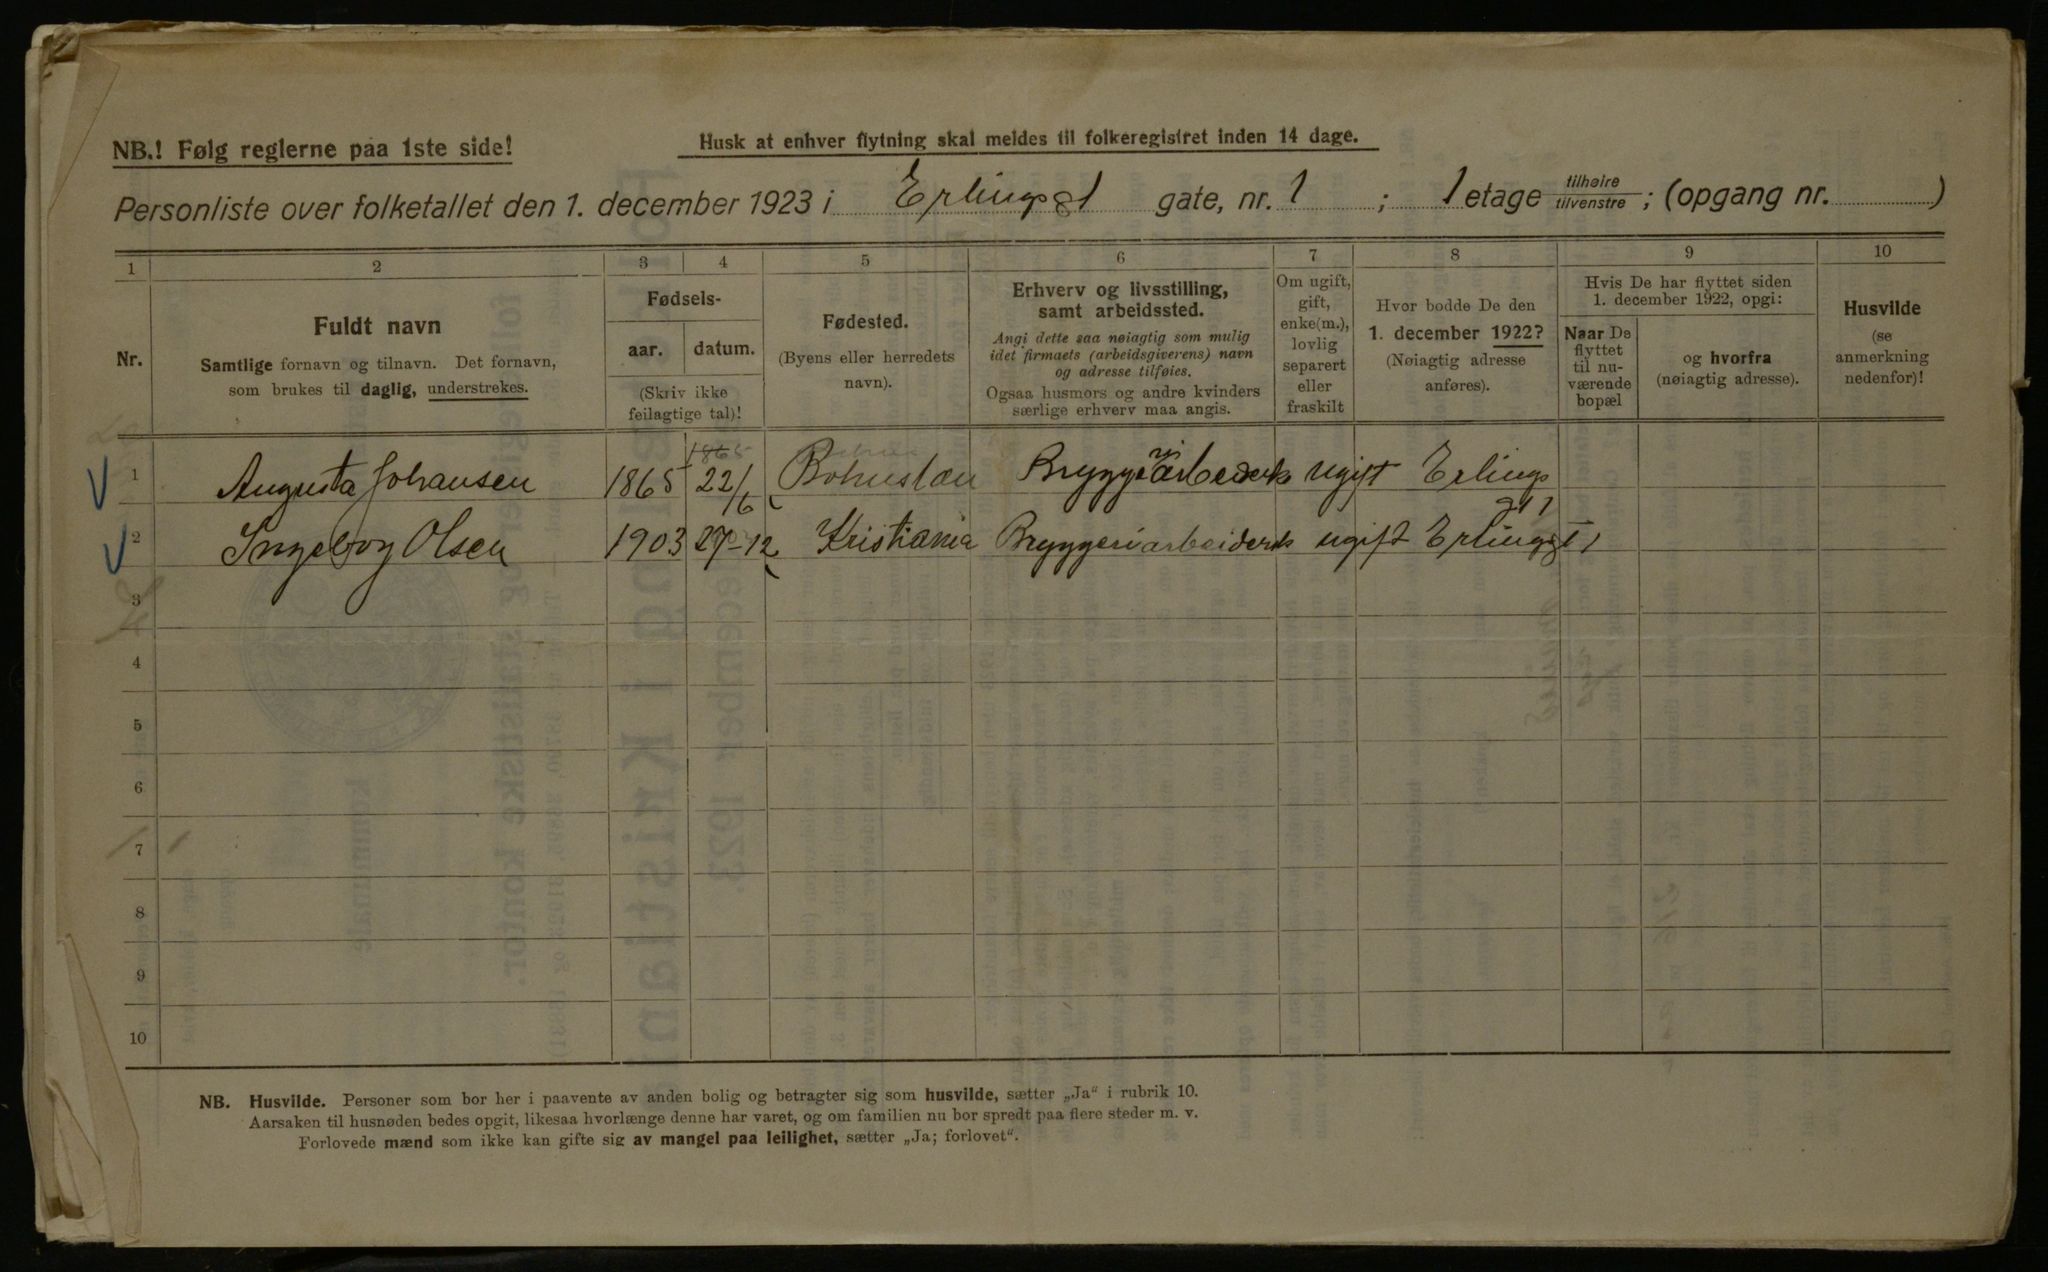 NB.! Følg reglerne paa 1ste side!
Husk at enhver flytning skal meldes til folkeregistret inden 14 dage.
Personliste over folketallet den 1. december 1923 i Erlingsgt gate, nr. 1 ; 1 etage tilhøire/tilvenstre; (opgang nr. )
1 2 3 4 5 6 7 8 9 10
Nr.
Fuldt navn
Samtlige fornavn og tilnavn. Det fornavn,
som brukes til daglig, understrekes.
Fødsels-
aar. datum.
(Skriv ikke
feilagtige tal)!
Fødested.
(Byens eller herredets
navn).
Erhverv og livsstilling,
samt arbeidssted.
Angi dette saa nøiagtig som mulig
idet firmaets (arbeidsgiverens) navn
og adresse tilføies.
Ogsaa husmors og andre kvinders
særlige erhverv maa angis.
Om ugift,
gift,
enke(m.),
lovlig
separert
eller
fraskilt
Hvor bodde De den
1. december 1922?
(Nøiagtig adresse
anføres).
Hvis De har flyttet siden
1. december 1922, opgi:
Naar De
flyttet
til nu-
værende
bopæl
og hvorfra
(nøiagtig adresse).
Husvilde
(se
anmerkning
nedenfor)!
1865
1 Augusta Johansen 1865 22/6 Bohuslæn Bryggeriarbeidersk ugift Erlings
gt 1
2 Ingeborg Olsen 1903 27-12 Kristiania Bryggeriarbeidersk ugift Erlingsgt 1
3
4
5
6
7
8
9
10
NB. Husvilde. Personer som bor her i paavente av anden bolig og betragter sig som husvilde, sætter „Ja“ i rubrik 10.
Aarsaken til husnøden bedes opgit, likesaa hvorlænge denne har varet, og om familien nu bor spredt paa flere steder m. v.
Forlovede mænd som ikke kan gifte sig av mangel paa leilighet, sætter „Ja; forlovet“.